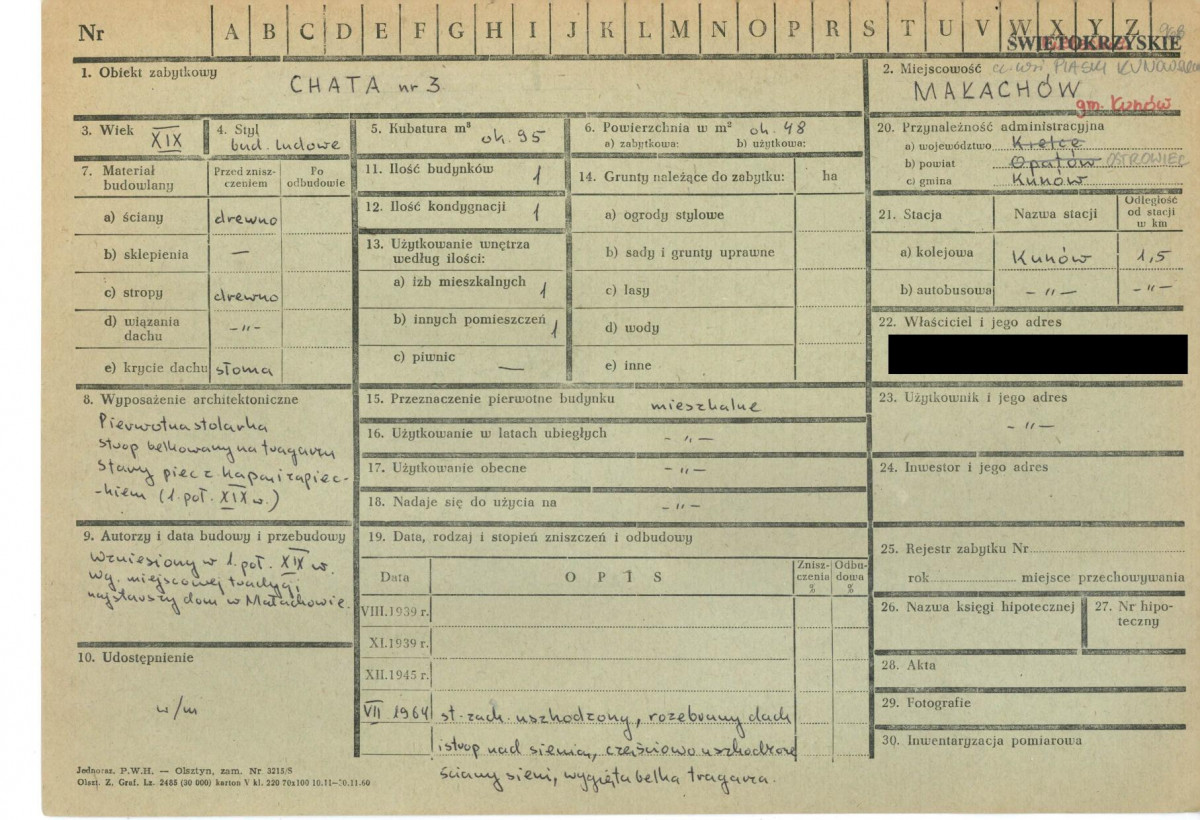 Nr A B C D E F G H I J K L M N O P R S T U V W X Y Z
ŚWIĘTOKRZYSKIE
1. Obiekt zabytkowy
CHATA nr 3
2. Miejscowość cz. wsi PIASKI KUNOWSKIE
MAŁACHÓW
gm. Kunów
3. Wiek XIX
4. Styl
bud. ludowe
5. Kubatura m³ ok. 95
6. Powierzchnia w m² ok. 48
a) zabytkowa: b) użytkowa:
20. Przynależność administracyjna
a) województwo Kielce
b) powiat Opatów OSTROWIEC
c) gmina Kunów
7. Materiał budowlany
Przed znisz-
czeniem
Po
odbudowie
a) ściany drewno
b) sklepienia —
c) stropy drewno
d) wiązania
dachu -"-
e) krycie dachu słoma
11. Ilość budynków 1
12. Ilość kondygnacji 1
13. Użytkowanie wnętrza
według ilości:
a) izb mieszkalnych 1
b) innych pomieszczeń 1
c) piwnic —
14. Grunty należące do zabytku: ha
a) ogrody stylowe
b) sady i grunty uprawne
c) lasy
d) wody
e) inne
21. Stacja
Nazwa stacji
Odległość
od stacji
w km
a) kolejowa Kunów 1,5
b) autobusowa - " - - " -
22. Właściciel i jego adres
8. Wyposażenie architektoniczne
Pierwotna stolarka
strop belkowany na tragarzu
stary piec z kapą i zapiec-
-kiem (1. poł. XIX w.)
15. Przeznaczenie pierwotne budynku mieszkalne
16. Użytkowanie w latach ubiegłych - " -
17. Użytkowanie obecne - " -
18. Nadaje się do użycia na - " -
23. Użytkownik i jego adres
- " -
24. Inwestor i jego adres
9. Autorzy i data budowy i przebudowy
Wzniesiony w 1. poł. XIX w.
wg. miejscowej tradycji
najstarszy dom w Małachowie.
10. Udostępnienie
w/m
19. Data, rodzaj i stopień zniszczeń i odbudowy
Data
OPIS
Znisz-
czenia
%
Odbu-
dowa
%
VIII.1939 r.
XI.1939 r.
XII.1945 r.
VII 1964 st. zach. uszkodzony, rozebrany dach
i strop nad sienią, częściowo uszkodzone
ściany sieni, wygięta belka tragarza.
25. Rejestr zabytku Nr
rok miejsce przechowywania
26. Nazwa księgi hipotecznej
27. Nr hipo-
teczny
28. Akta
29. Fotografie
30. Inwentaryzacja pomiarowa
Jednoraz. P.W.H. — Olsztyn, zam. Nr 3215/S
Olszt. Z. Graf. Lz. 2485 (30 000) karton V kl. 220 70x100 10.11—30.11.60